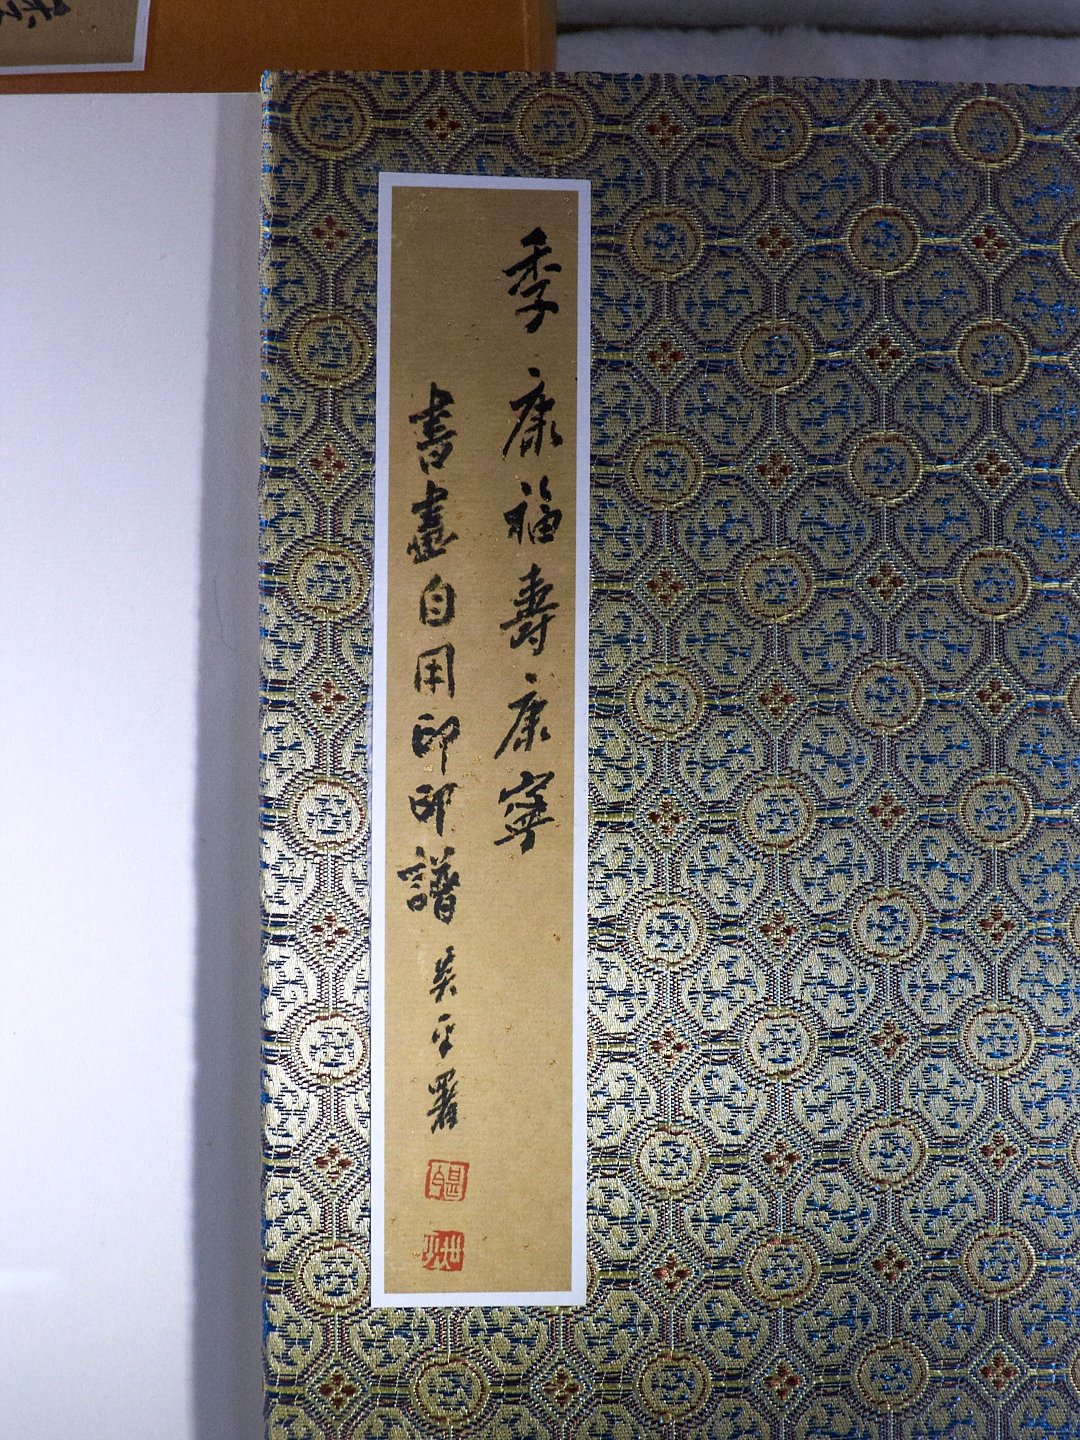 季康福壽康寧
書畫自用印印譜 吳平署